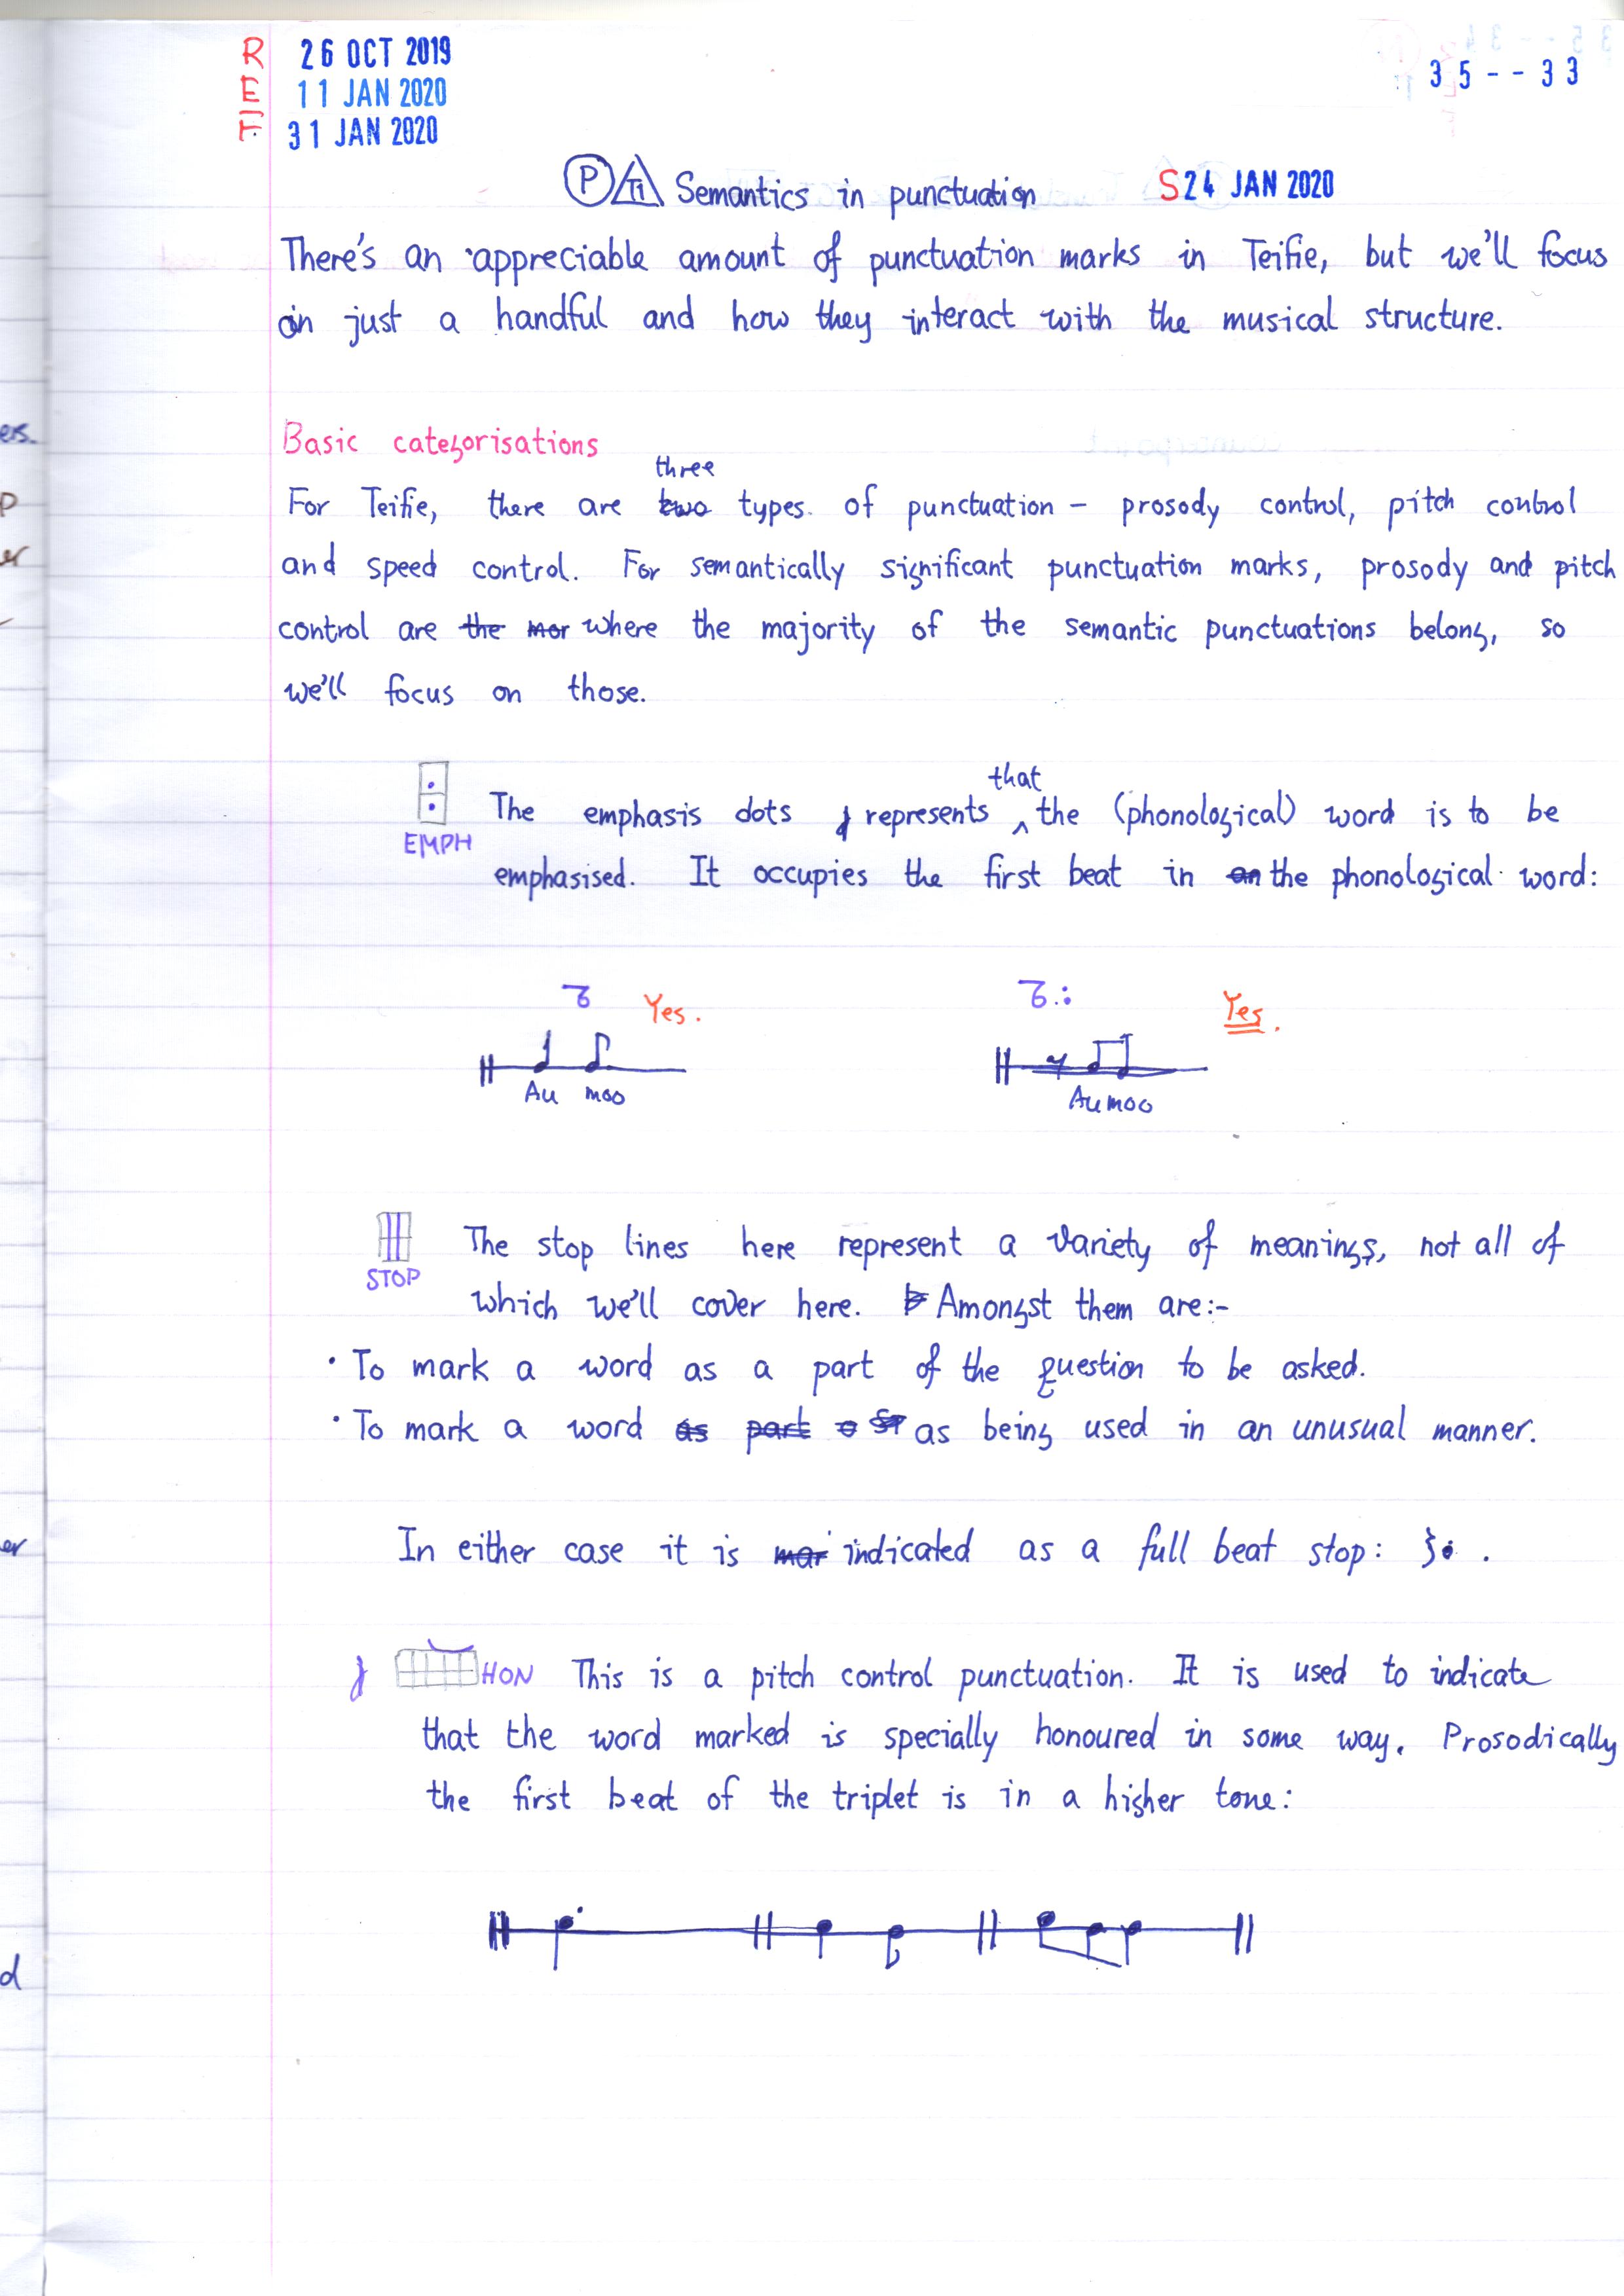 REF
26 OCT 2019
11 JAN 2020
31 JAN 2020
35--33
P Ti Semantics in punctuation S24 JAN 2020
There's an appreciable amount of punctuation marks in Teifie, but we'll focus
on just a handful and how they interact with the musical structure.
Basic categorisations
three
For Teifie, there are two types of punctuation – prosody control, pitch control
and speed control. For semantically significant punctuation marks, prosody and pitch
control are the mor where the majority of the semantic punctuations belong, so
we'll focus on those.
that
The emphasis dots represents ^ the (phonological) word is to be
EMPH
emphasised. It occupies the first beat in an the phonological word:
Yes. Yes.
Au moo Au moo
The stop lines here represent a variety of meanings, not all of
STOP
which we'll cover here. Amongst them are:-
· To mark a word as a part of the question to be asked.
· To mark a word as part as being used in an unusual manner.
In either case it is mar indicated as a full beat stop:
HON This is a pitch control punctuation. It is used to indicate
that the word marked is specially honoured in some way. Prosodically
the first beat of the triplet is in a higher tone:
ers.
P
er
er
d